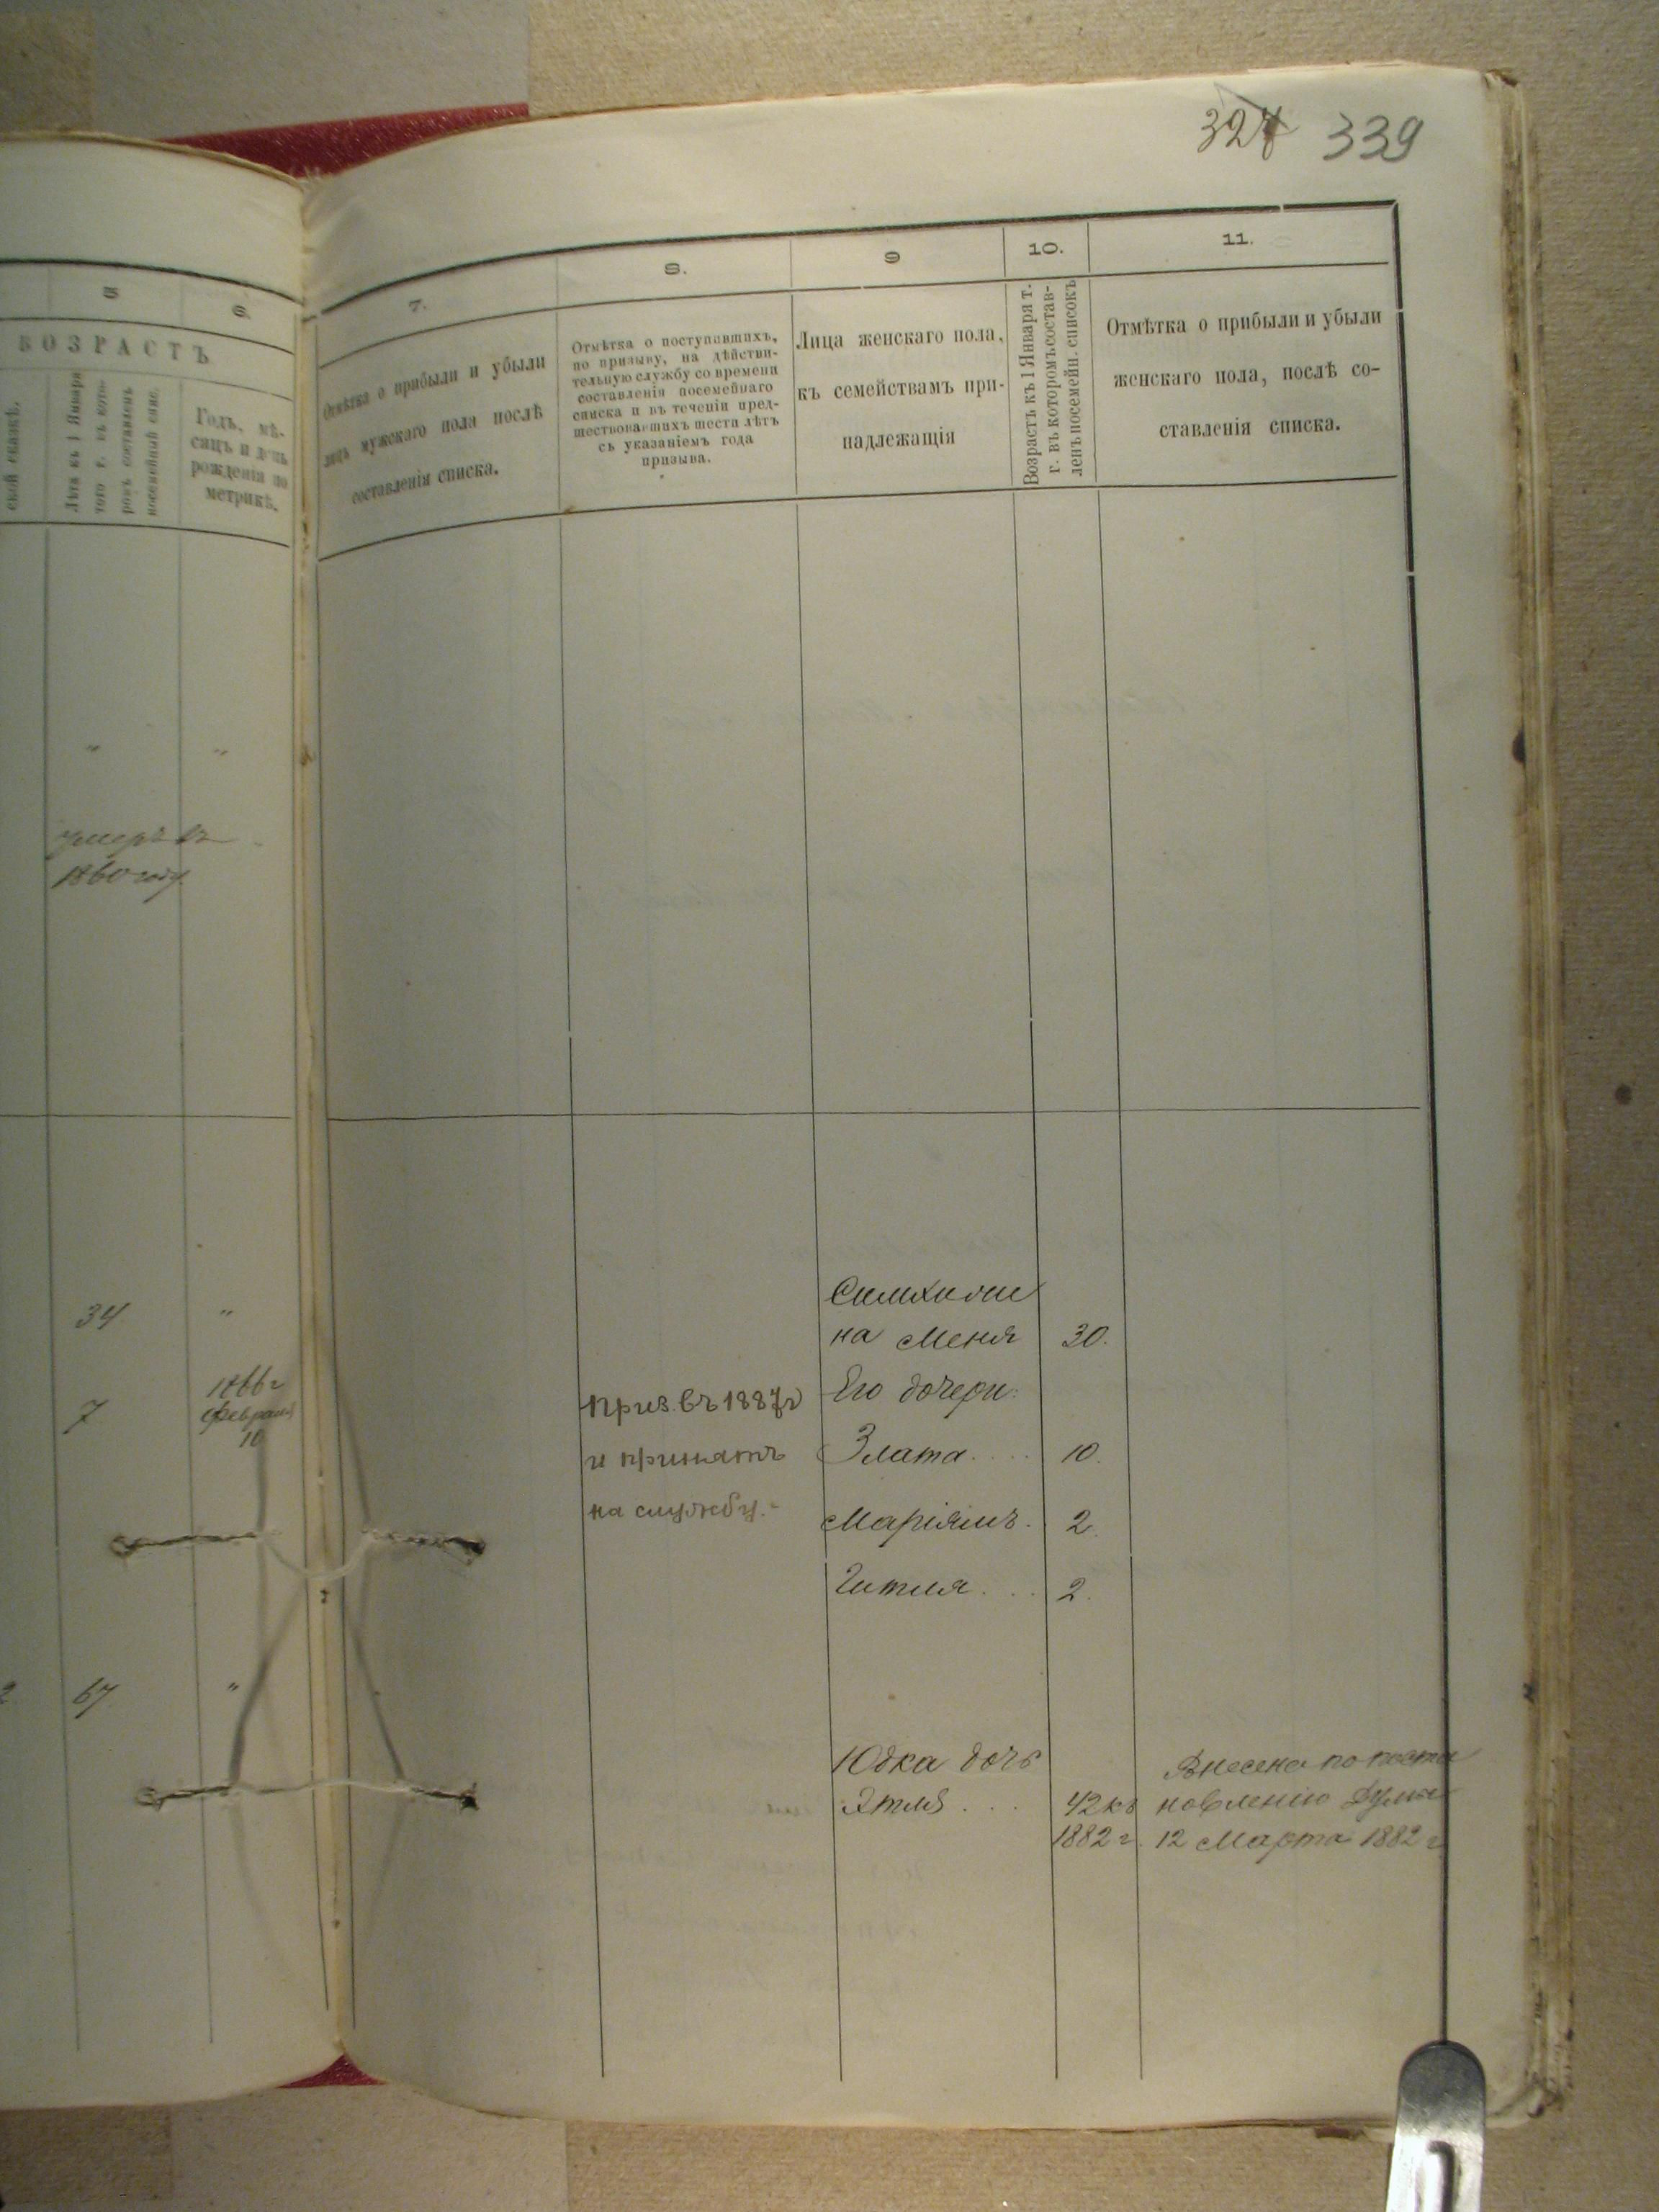 327 339
5
6.
ВОЗРАСТЪ
Лѣта къ 1 Января
того г. въ кото-
ромъ составленъ
посемейный спис.
Годъ, мѣ-
сяцъ и день
рожденія по
метрикѣ.
"
"
умеръ въ
1860 году.
34
"
7
1866 г
Февраля
10
67
"
7.
8.
9
10.
11.
Отмѣтка о прибыли и убыли
лицъ мужскаго пола послѣ
составленія списка.
Отмѣтка о поступившихъ,
по призыву, на дѣйстви-
тельную службу со времени
составленія посемейнаго
списка и въ теченіи пред-
шествовавшихъ шести лѣтъ
съ указаніемъ года
призыва.
Лица женскаго пола,
къ семействамъ при-
надлежащія
Возрастъ къ 1 Января т.
г. въ которомъ состав-
ленъ посемейн. списокъ
Отмѣтка о прибыли и убыли
женскаго пола, послѣ со-
ставленія списка.
на Меня 30.
Приз. въ 1887 г
и принятъ
на службу.-
Его дочери:
Злата.... 10.
Маріямъ. 2.
Гитля... 2.
Юдка дочь
Этля... 42 къ
1882 г.
Внесена по поста
новленію Думы
12 Марта 1882 г